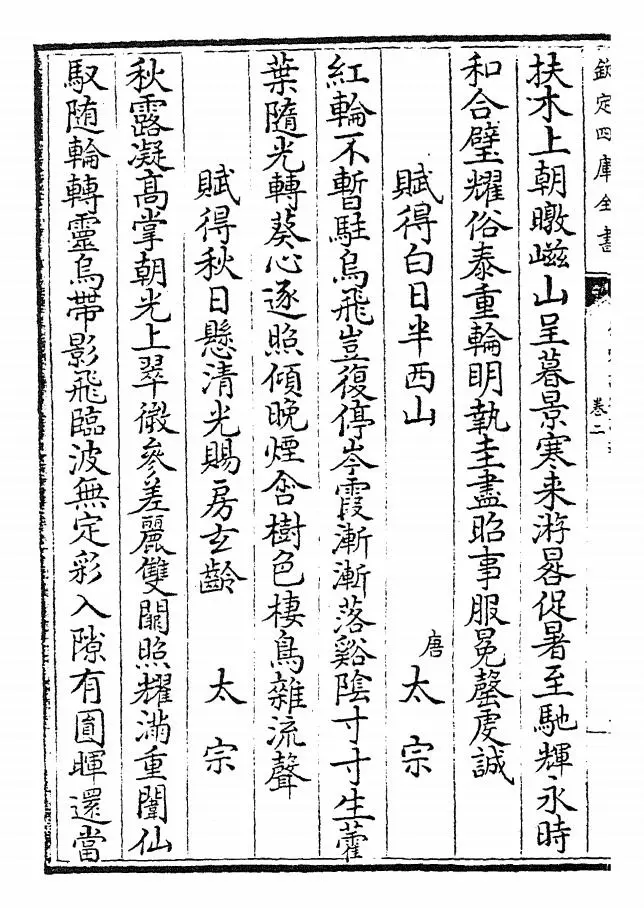 欽定四庫全書
卷二
扶木上朝暾嵫山呈暮景寒来游晷促暑至馳輝永時
和合璧耀俗泰重輪明執圭盡昭事服冕罄虔誠
賦得白日半西山 唐 太宗
紅輪不暫駐烏飛豈復停岑霞漸漸落谿陰寸寸生藿
葉隨光轉葵心逐照傾晚煙含樹色棲鳥雜流聲
賦得秋日懸清光賜房玄齡 太宗
秋露凝高掌朝光上翠微參差麗雙闕照耀滿重闈仙
馭随輪轉靈烏帶影飛臨波無定彩入隙有圓暉還當